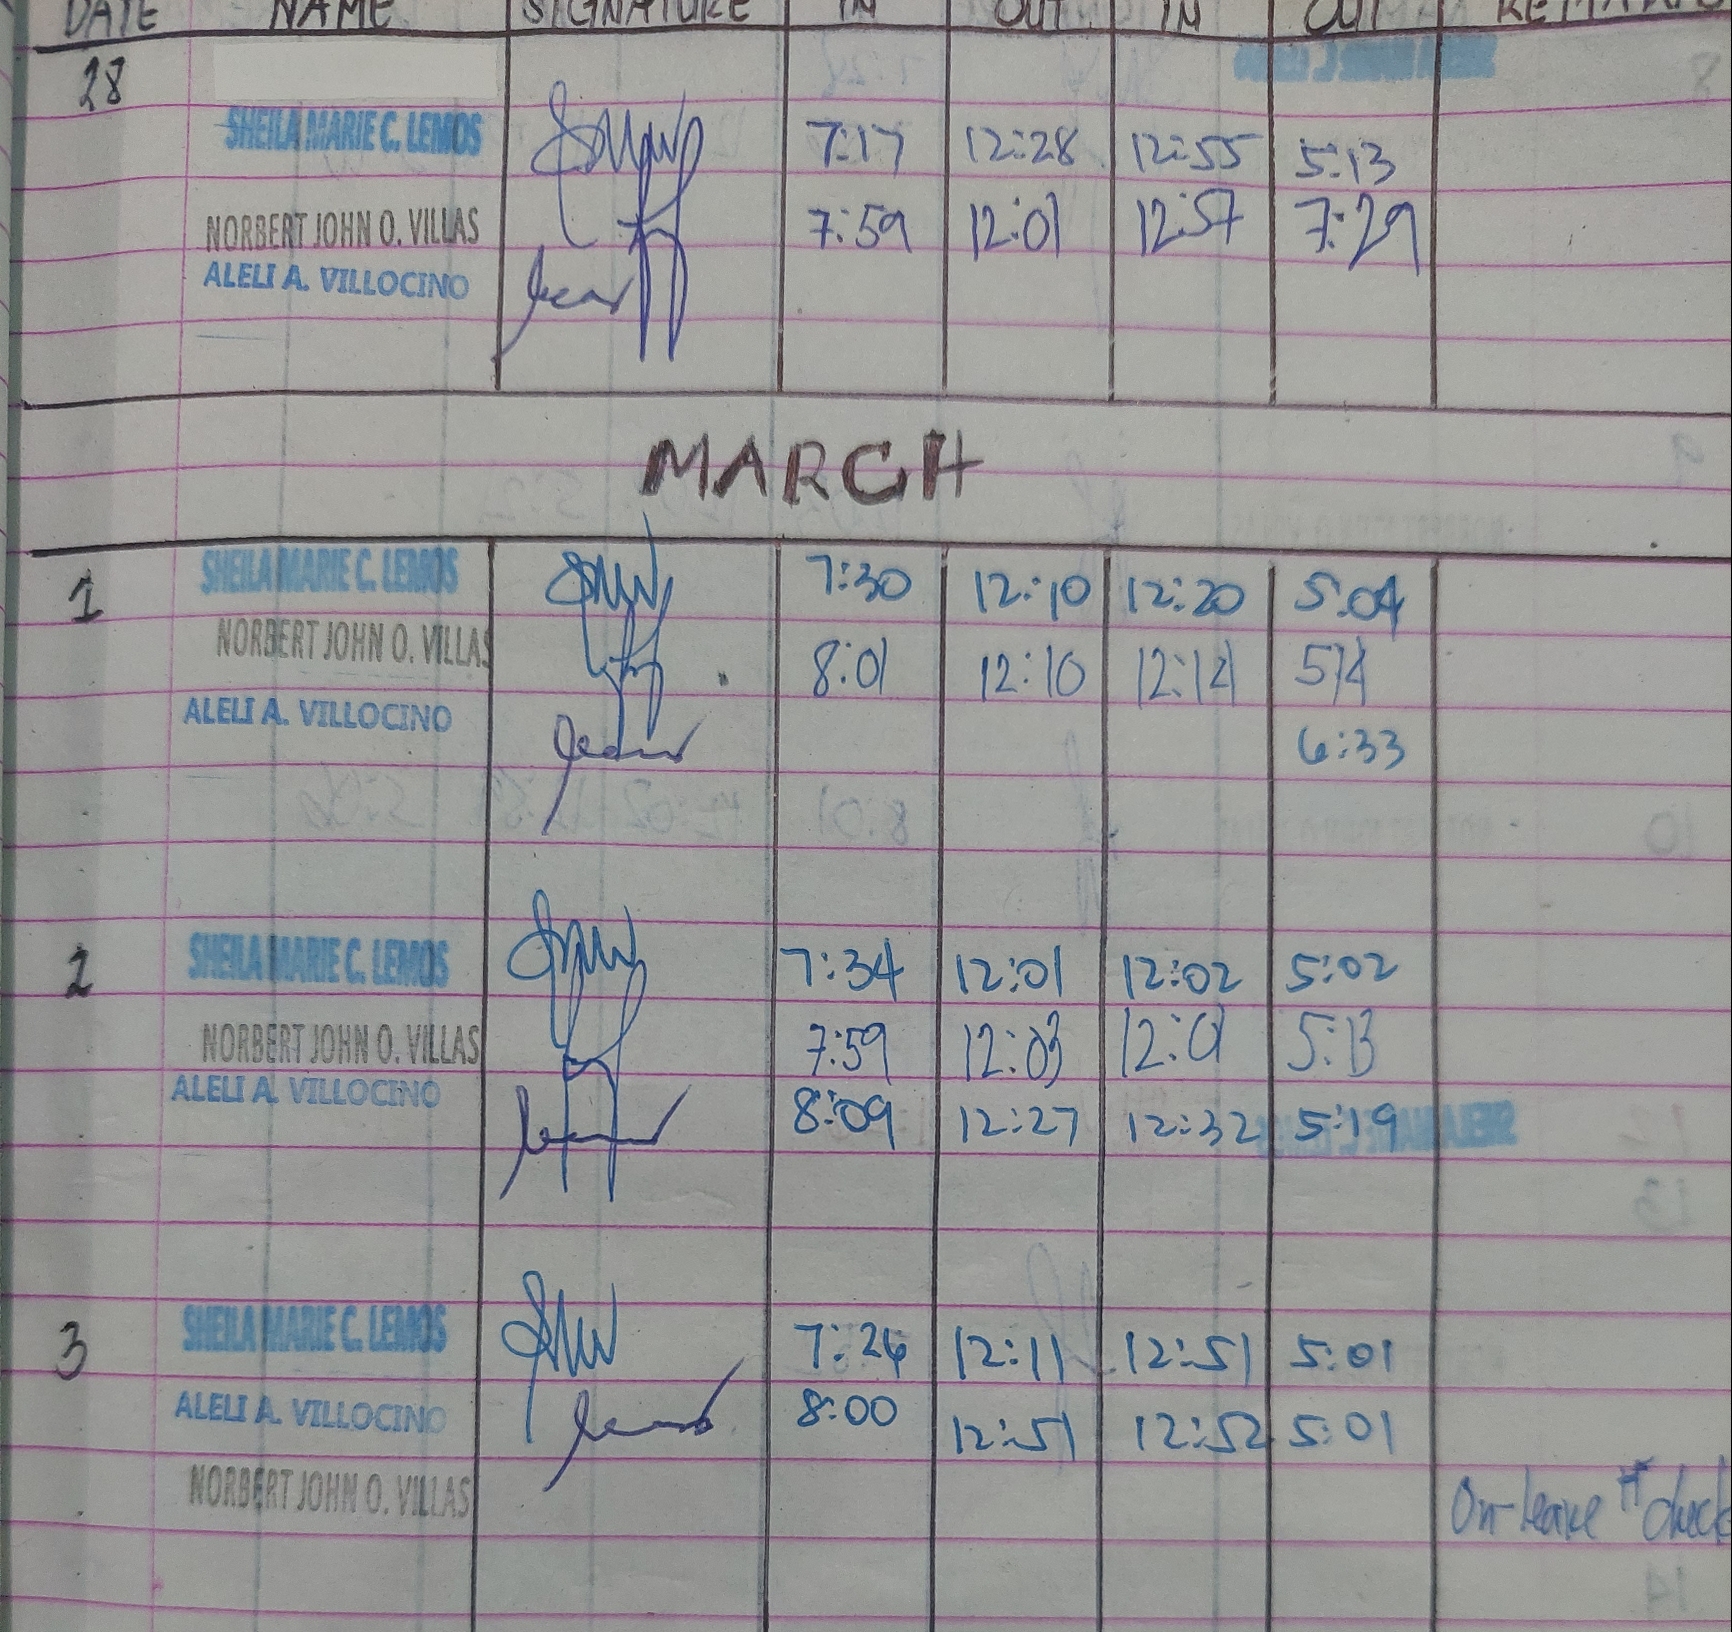 DATE NAME SIGNATURE IN OUT IN OUT REMARKS
28
SHEILA MARIE C. LEMOS 7:17 12:28 12:55 5:13
NORBERT JOHN O. VILLAS 7:59 12:01 12:57 7:29
ALELI A. VILLOCINO
MARCH
1 SHEILA MARIE C. LEMOS 7:30 12:10 12:20 5:04
NORBERT JOHN O. VILLAS 8:01 12:10 12:14 514
ALELI A. VILLOCINO 6:33
2 SHEILA MARIE C. LEMOS 7:34 12:01 12:02 5:02
NORBERT JOHN O. VILLAS 7:59 12:03 5:13
ALELI A. VILLOCINO 8:09 12:27 12:32 5:19
3 SHEILA MARIE C. LEMOS 7:26 12:11 12:51 5:01
ALELI A. VILLOCINO 8:00 12:51 12:52 5:01
NORBERT JOHN O. VILLAS On-leave check